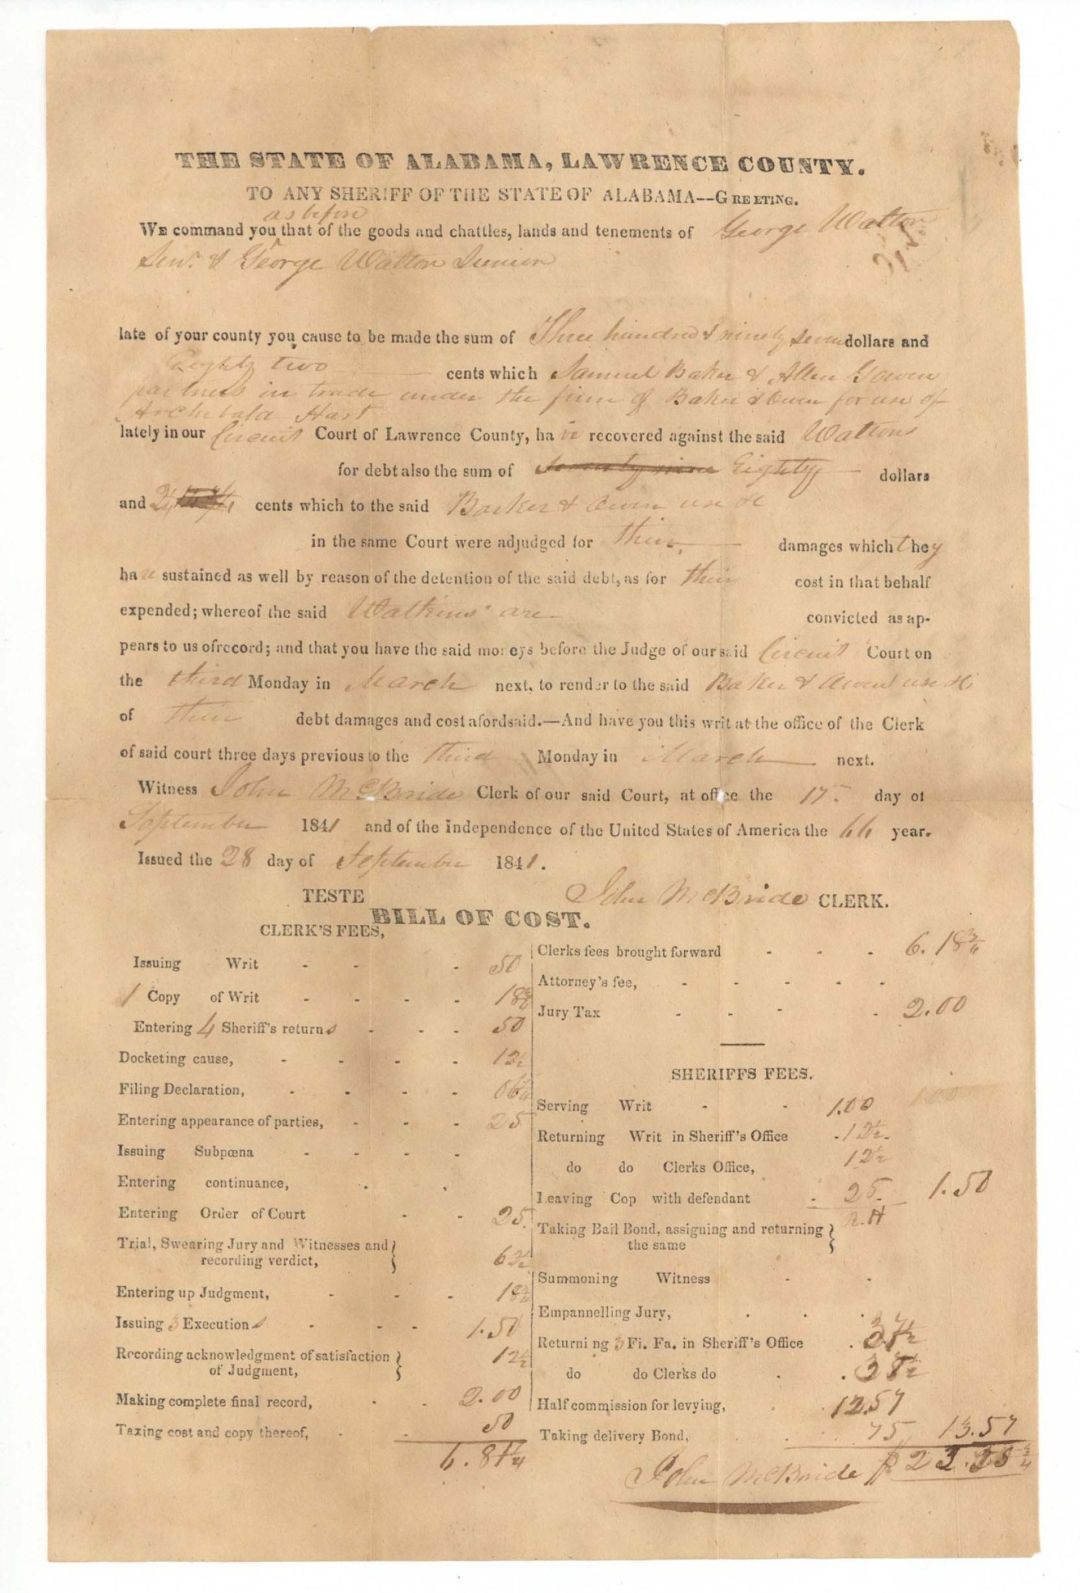 THE STATE OF ALABAMA, LAWRENCE COUNTY.
TO ANY SHERIFF OF THE STATE OF ALABAMA—GREETING.
as before
WE command you that of the goods and chattles, lands and tenements of George Walton
Senr. & George Walton Junior
late of your county you cause to be made the sum of Three hundred & ninety seven dollars and
Eighty two cents which Samuel Baker & Allen Gowen
partners in trade under the firm of Baker & Owen for use of
Archibald Hart
lately in our Circuit Court of Lawrence County, ha ve recovered against the said Waltons
for debt also the sum of seventy nine Eighty dollars
and cents which to the said Baker & Owen use &c
in the same Court were adjudged for their damages which they
ha ve sustained as well by reason of the detention of the said debt, as for their cost in that behalf
expended; whereof the said Watkins are convicted as ap-
pears to us ofrecord; and that you have the said moneys before the Judge of our said Circuit Court on
the third Monday in March next, to render to the said Baker & Owen use &c
of their debt damages and cost afordsaid.—And have you this writ at the office of the Clerk
of said court three days previous to the third Monday in March next.
Witness John McBride Clerk of our said Court, at office the 17 day of
September 1841 and of the Independence of the United States of America the 66 year.
Issued the 28 day of September 1841.
TESTE John McBride CLERK.
BILL OF COST.
CLERK'S FEES,
Issuing Writ - - - 50
1 Copy of Writ - - - - 18¾
Entering 4 Sheriff's returns - - - 50
Docketing cause, - - - - 12½
Filing Declaration, - - - - 06¼
Entering appearance of parties, - - - 25
Issuing Subpœna - - - -
Entering continuance, - -
Entering Order of Court - - 25
Trial, Swearing Jury and Witnesses and }
recording verdict, 62½
Entering up Judgment, - - - 18¾
Issuing 3 Executions - - - 1.50
Recording acknowledgment of satisfaction }
of Judgment, 12½
Making complete final record, - - 2.00
Taxing cost and copy thereof, - - 50
Clerks fees brought forward - - - 6.18¾
Attorney's fee, - - - - -
Jury Tax - - - - 2.00
SHERIFFS FEES.
Serving Writ - - 1.00
Returning Writ in Sheriff's Office - 12½
do do Clerks Office, 12½
Leaving Cop with defendant - 25 1.50
Taking Bail Bond, assigning and returning }
the same
Summoning Witness - -
Empannelling Jury, - - -
Returning 3 Fi. Fa. in Sheriff's Office . 37½
do do Clerks do . 37½
Half commission for levying, 12.57
Taking delivery Bond, 75 13.57
John McBride